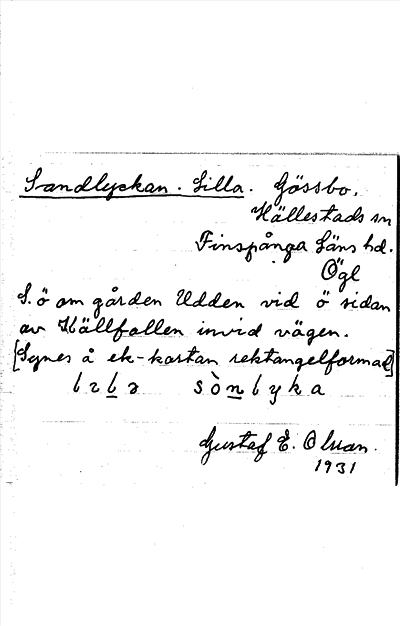 Sandlyckan. Lilla. Gössbo,
Hällestads sn
Finspånga Läns hd.
Ögl
S. ö om gården Udden vid ö sidan
av Hällfallen invid vägen.
[Synes å ek-kartan rektangelformad]
sònlyka
Gustaf E. Olson.
1931